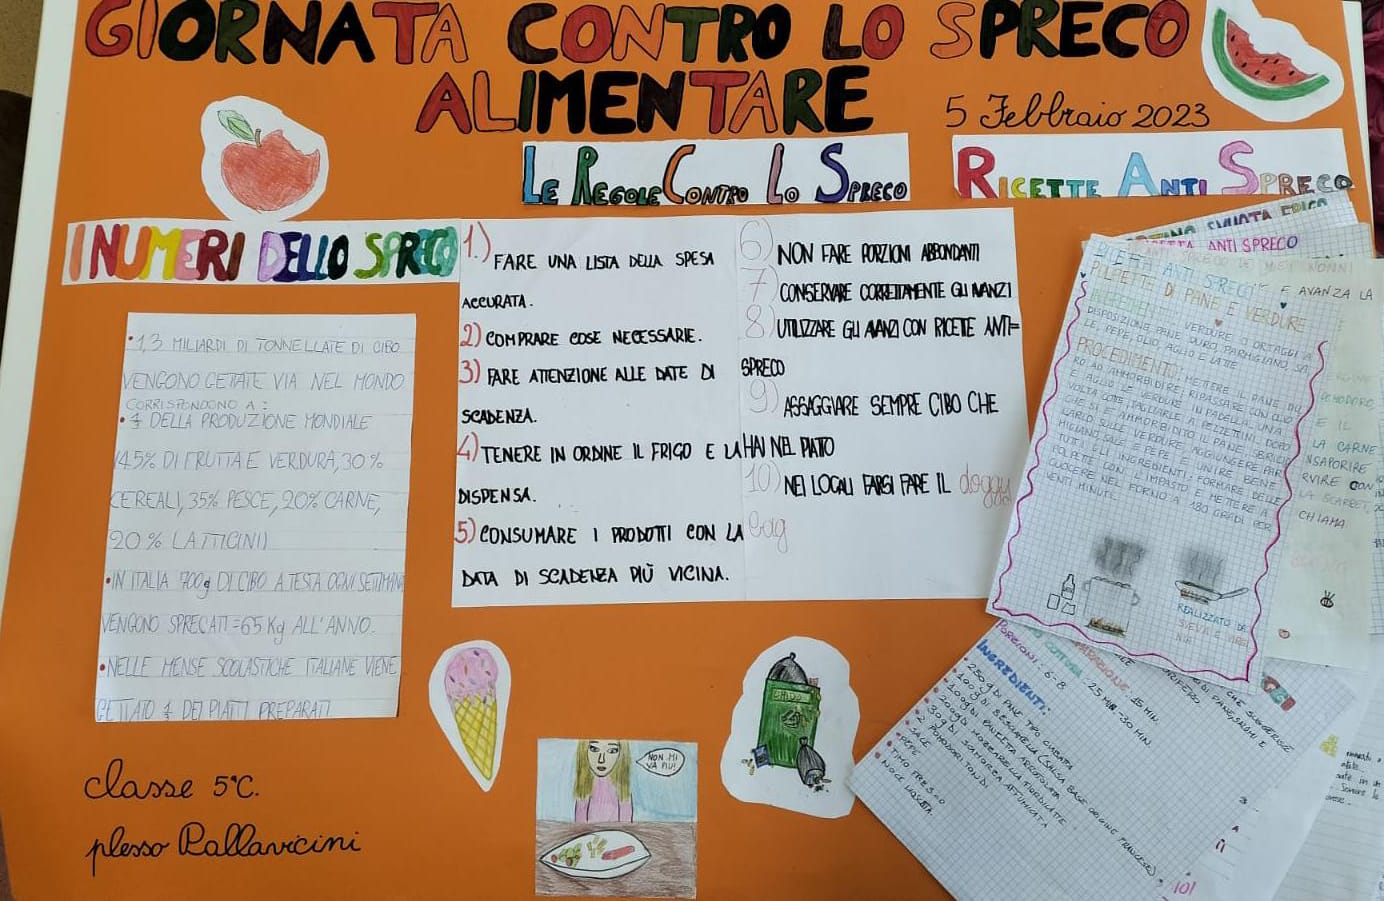 GIORNATA CONTRO LO SPRECO
ALIMENTARE
5 Febbraio 2023
LE REGOLE CONTRO LO SPRECO
RICETTE ANTI SPRECO
I NUMERI DELLO SPRECO
• 1,3 MILIARDI DI TONNELLATE DI CIBO
VENGONO GETTATE VIA NEL MONDO
CORRISPONDONO A:
• DELLA PRODUZIONE MONDIALE
45% DI FRUTTA E VERDURA, 30%
CEREALI, 35% PESCE, 20% CARNE,
20% LATTICINI
• IN ITALIA 700g DI CIBO A TESTA OGNI SETTIMANA
VENGONO SPRECATI = 65 Kg ALL'ANNO.
• NELLE MENSE SCOLASTICHE ITALIANE VIENE
GETTATO DEI PIATTI PREPARATI
1.) FARE UNA LISTA DELLA SPESA
ACCURATA.
2) COMPRARE COSE NECESSARIE.
3) FARE ATTENZIONE ALLE DATE DI
SCADENZA.
4) TENERE IN ORDINE IL FRIGO E LA
DISPENSA.
5) CONSUMARE I PRODOTTI CON LA
DATA DI SCADENZA PIÙ VICINA.
6) NON FARE PORZIONI ABBONDANTI
7) CONSERVARE CORRETTAMENTE GLI AVANZI
8) UTILIZZARE GLI AVANZI CON RICETTE ANTI=
SPRECO
9) ASSAGGIARE SEMPRE CIBO CHE
HAI NEL PIATO
10) NEI LOCALI FARSI FARE IL doggy
bag
SVUOTA FRIGO
ANTI SPRECO
NONNI
E AVANZA LA
ANTI SPRECO
POLPETTE DI PANE E VERDURE
VERDURE O ORTAGGI A
DISPOSIZIONE, PANE DURO, PARMIGIANO, SA
LE, PEPE, OLIO, AGLIO E LATTE
PROCEDIMENTO: METTERE IL PANE DU
RO AD AMMORBIDIRE. RIPASSARE CON OLIO
E AGLIO LE VERDURE IN PADELLA. UNA
VOLTA COTE TAGLIARLE A PEZZETTINI. DOPO
CHE SI È AMMORBIDITO IL PANE, SBRICIO
LARLO SULLE VERDURE, AGGIUNGERE PAR
MIGIANO, SALE E PEPE E UNIRE BENE
TUTTI GLI INGREDIENTI. FORMARE DELLE
POLPETTE CON L'IMPASTO E METTERE A
CUOCERE NEL FORNO A 180 GRADI PER
VENTI MINUTI.
REALIZZATO DA
POMODORO,
E IL
LA CARNE
INSAPORIRE
CON
CHIAMA
PORZIONI: 6-8
COTTURA: 25 MIN - 30 MIN.
15 MIN.
INGREDIENTI:
• 250g DI PANE TIPO CIABATTA
• 100g DI BESCIAMELLA (SALSA BASE ORIGINE FRANCESE)
• 100g DI PANCETTA ARROTOLATA
• 200g DI MOZZARELLA FIORDILATTE
• 30g DI SCAMORZA AFFUMICATA
• 2 POMODORI TONDI
• SALE
• PEPE
• TIMO FRESCO
• NOCE MOSCATA.
CHE SUGGERISCE
NON MI
VA PIÙ!
classe 5°C.
plesso Pallavicini